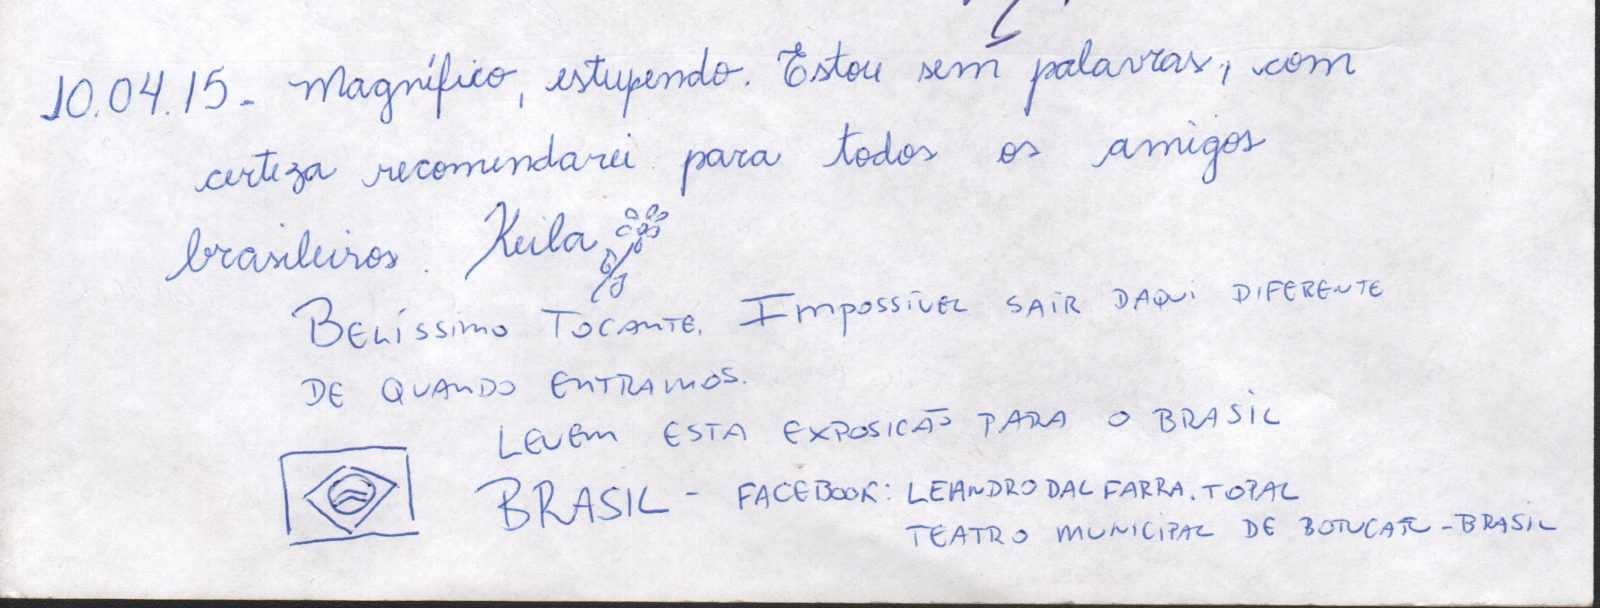 10.04.15. Magnífico, estupendo. Estou sem palavras, com
certeza recomendarei para todos os amigos
brasileiros. Keila
BELÍSSIMO TOCANTE. IMPOSSÍVEL SAIR DAQUI DIFERENTE
DE QUANDO ENTRAMOS.
LEVEM ESTA EXPOSICÃO PARA O BRASIL
BRASIL - FACEBOOK: LEANDRO DAL FARRA. TOPAL
TEATRO MUNICIPAL DE BOTUCATU - BRASIL